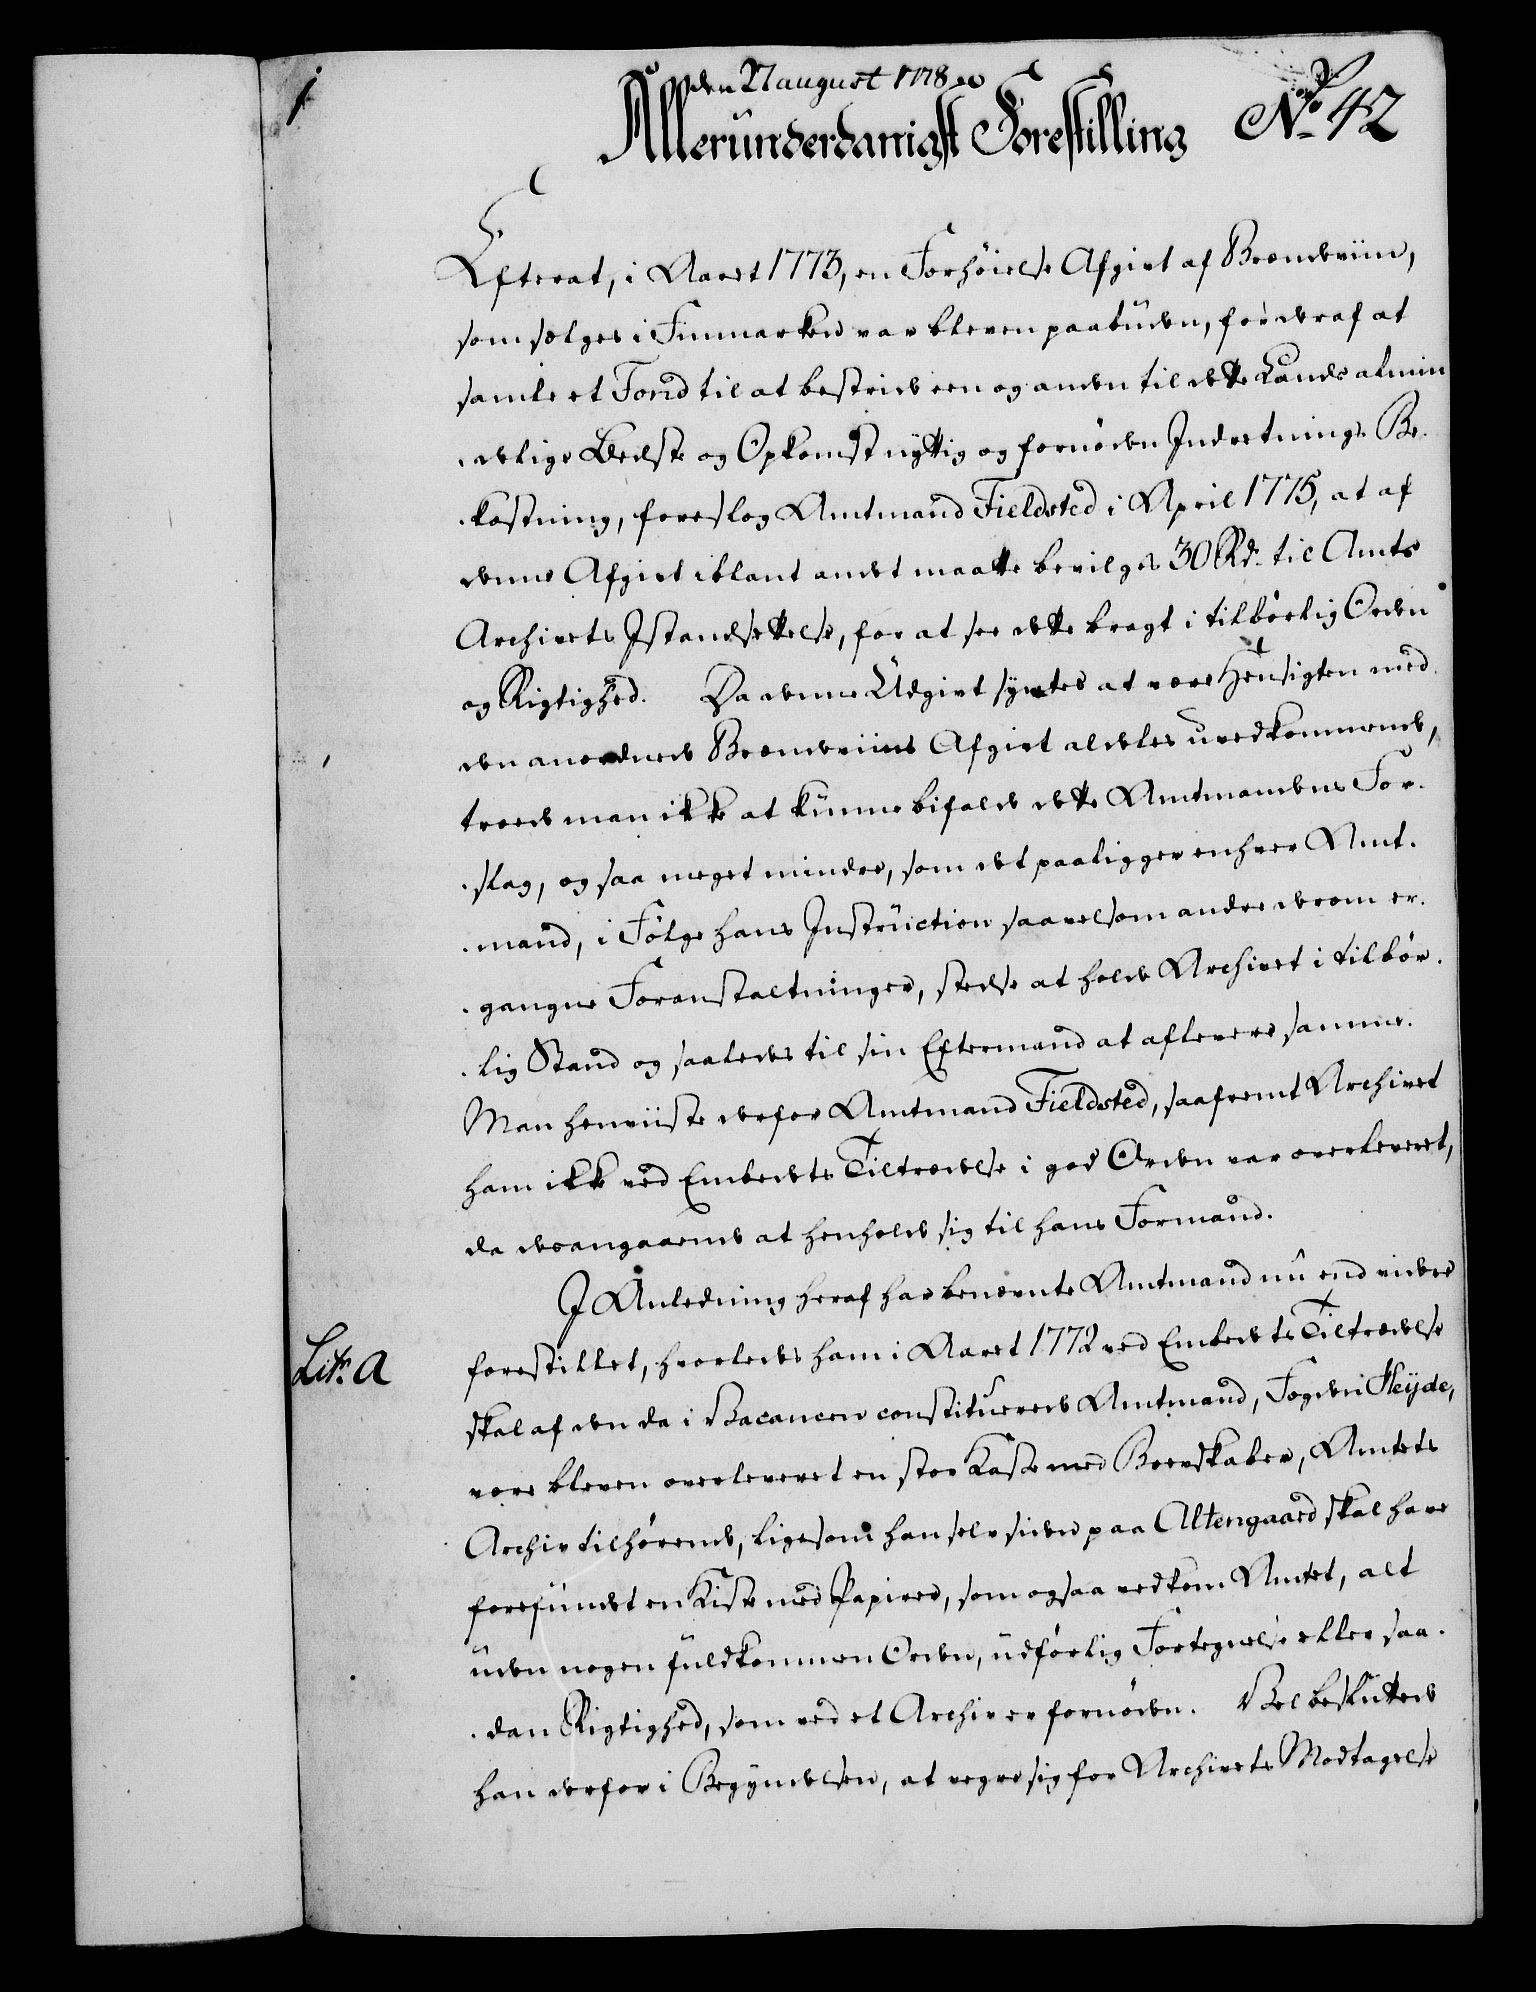 1
den 27 august 1778
Allerunderdanigst Forestilling
No. 42
Efterat, i Aaret 1773, en Forhöielse Afgivt af Brændeviin,
som sælges i Finmarken var bleven paabuden, for deraf at
samle et Fond til at bestride een og anden til dette Lands almin
delige Bedste og Opkomst nyttig og fornöden Indretnings Be-
kostning, foreslog Amtmand Fieldsted i April 1775, at af
denne Afgivt iblant andet maatte bevilges 30 Rd. til Amts
Archivets Istandsættelse, for at see dette bragt i tilbörlig Orden
og Rigtighed. Da denne Udgivt syntes at være Hensigten med
den anordnede Brændeviins Afgivt aldeles uvedkommende,
troede man ikke at kunne bifalde dette Amtmandens For-
slag, og saa meget mindre, som det paaligger enhver Amt-
mand, i Fölge hans Instruction saavelsom andre derom er-
gangne Foranstaltninger, stedse at holde Archivet i tilbör-
lig Stand og saaledes til sin Eftermand at aflevere samme.
Man henviiste derfor Amtmand Fieldsted, saafremt Archivet
ham ikke ved Embedets Tiltrædelse i god Orden var overleveret,
da desangaaende at henholde sig til hans Formand.
I Anledning heraf har benævnte Amtmand nu end videre
Litr. A
forestillet, hvorledes ham i Aaret 1772 ved Embedets Tiltrædelse
skal af den da i Vacancen constituerede Amtmand, Fogden Heyde,
være bleven overleveret en stor Kaste med Brevskaber, Amtets
Archiv tilhörende, ligesom han selv siden paa Altengaard skal have
forefundet en Kiste med Papirer, som ogsaa vedkom Amtet, alt
uden nogen fuldkommen Orden, udförlig Fortegnelse eller saa-
dan Rigtighed, som ved et Archiv er fornöden. Vel besluttede
han derfor i Begyndelsen, at vegre sig for Archivets Modtagelse